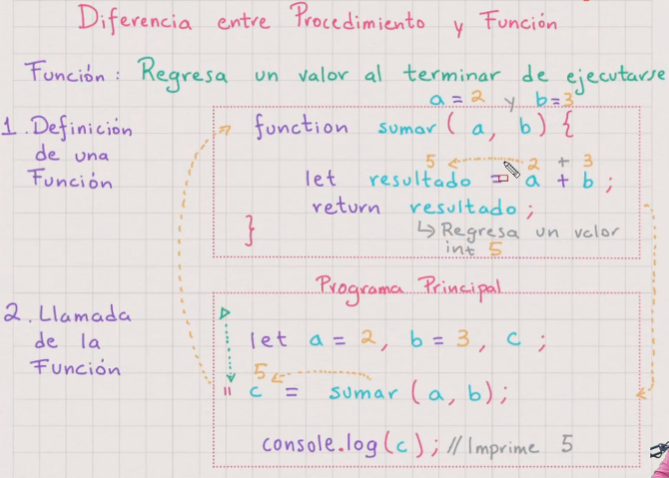 Diferencia entre Procedimiento y Función
Función: Regresa un valor al terminar de ejecutarse
a = 2 y b=3
1. Definición
de una
Función
function sumar ( a, b) {
5 2 + 3
let resultado = a + b ;
return resultado ;
}
↳ Regresa un valor
int 5
Programa Principal
2. Llamada
de la
Función
let a = 2, b = 3, c ;
5
c = sumar (a, b);
console.log(c); // Imprime 5